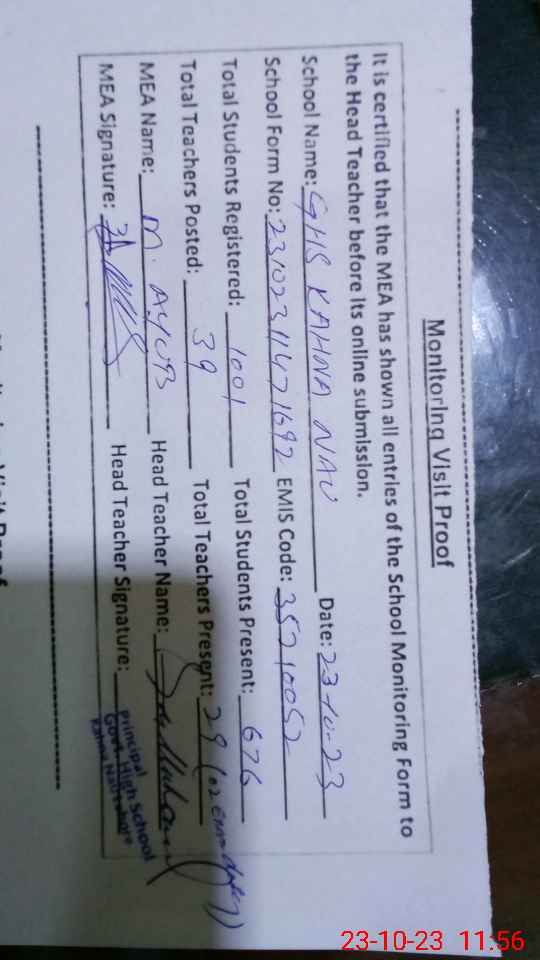 Monitoring Visit Proof
It is certified that the MEA has shown all entries of the School Monitoring Form to
the Head Teacher before its online submission.
School Name: GHS KAHNA NAU Date: 23-10-23
School Form No: 23102311471692 EMIS Code: 35210052
Total Students Registered: 1001 Total Students Present: 676
Total Teachers Posted: 39 Total Teachers Present: 29
MEA Name: M. AYUB Head Teacher Name:
MEA Signature: Head Teacher Signature:
Principal
Govt. High School
Kahna Nau Lahore
23-10-23 11:56